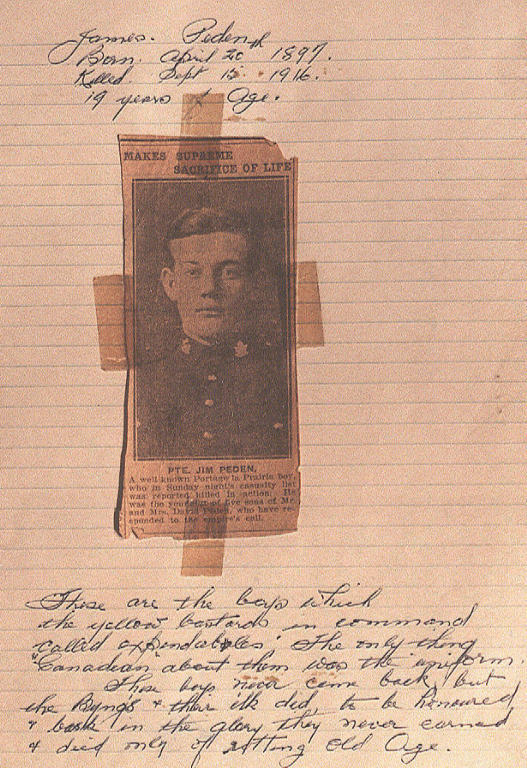 James. Peden
Born. April 20 1897.
Killed. Sept 15. 1916.
19 years of Age.
MAKES SUPREME
SACRIFICE OF LIFE
PTE. JIM PEDEN,
A well known Portage la Prairie boy,
who in Sunday night's casualty list
was reported killed in action. He
was the youngest of five sons of Mr.
and Mrs. David Peden, who have re-
sponded to the empire's call.
These are the boys which
the yellow bastards in command
called expendables. The only thing
"Canadian" about them was the uniform.
These boys never came back, but
the Byngs & their ilk did, to be honoured
& bask in the glory they never earned
& died only of rotting old Age.